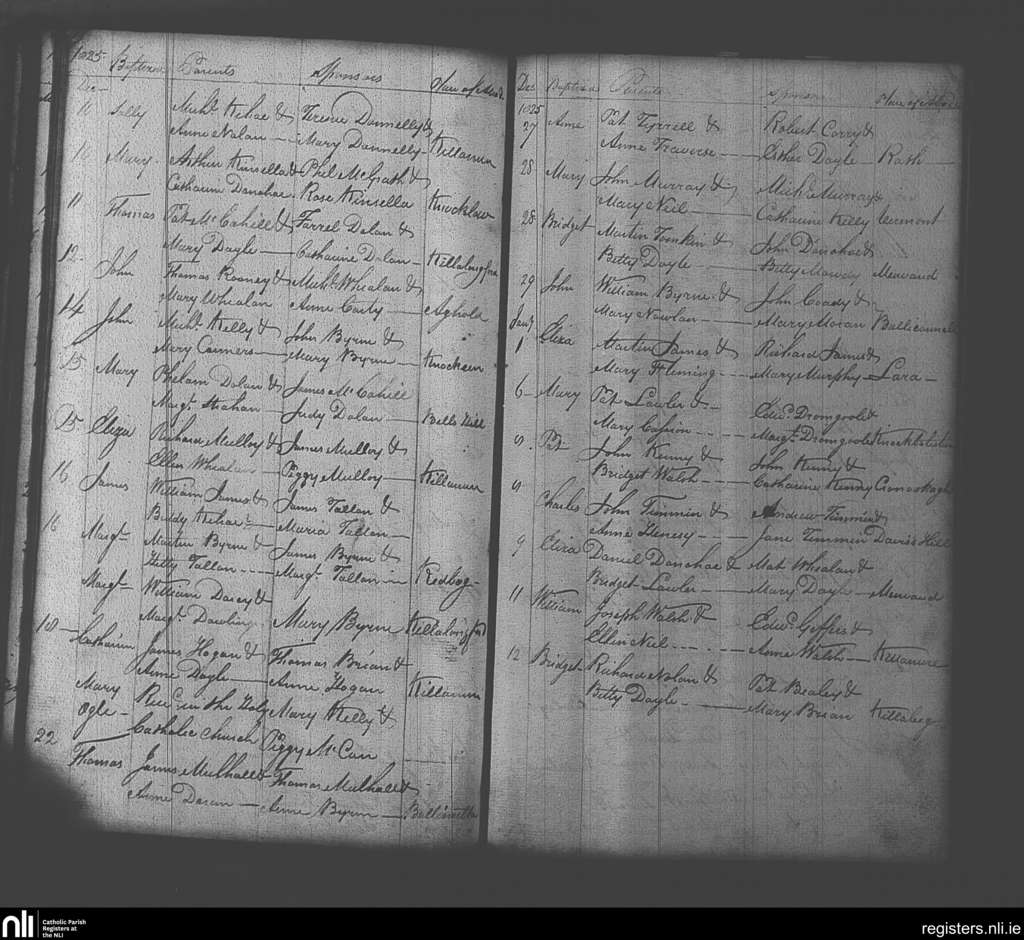 1825 Baptized Parents Sponsors Place of Abode
Decr
11 Sally Michl Kehoe & Terence Donnelly &
Anne Nolan Mary Donnelly Killamure
10 Mary Arthur Kinsella & Phel McGrath &
Catharine Donohoe Rose Kinsella Knocklow
11 Thomas Pat McCahill & Farrel Dolan &
Mary Doyle Catharine Dolan
12 John Thomas Rooney & Michl Whealan &
Mary Whealan Anne Carty Aghold
14 John Michl Kelly & John Byrne &
Mary Conners Mary Byrne Knockeen
15 Mary Phelam Dolan & James McCahill
Margt Judy Dolan
15 Eliza Richard Mulloy & James Mulloy &
Ellen Whealan Peggy Mulloy Killamure
16 James William James & James Tallon &
Biddy Kehoe Maria Tallon
16 Margt Martin Byrne & James Byrne &
Kitty Tallon Margt Tallon Redbog
Margt William Darcy &
Margt Dowling Mary Byrne
18 Catharine James Hogan & Thomas Brian &
Anne Doyle Anne Hogan Killamure
Mary Recd in the Holy Mary Kelly &
Ogle Catholic Church Peggy McCan
22 Thomas James Mulhall & Thomas Mulhall &
Anne Doran Anne Byrne
Dec Baptized Parents Sponsors Place of Abode
1825
27 Anne Pat Tyrrell & Robert Corry &
Anne Traverse Esther Doyle Rath
28 Mary John Murray & Michl Murray &
Mary Neil Catharine Kelly Urimont
28 Bridget Martin Tomkin & John Donohoe &
Betty Doyle Betty Mowdy
29 John William Byrne & John Coady &
Mary Nowlan Mary Moran
Jany
1 Eliza Martin James & Richard James &
Mary Fleming Mary Murphy Lara
6 Mary Pat Lawler & Edwd Dromgoole &
Mary Margt Dromgoole
8 Pat John Kenny & John Kenny &
Bridget Walsh Catharine Kenny
8 Charles John Timmin & Andrew Timmin &
Anne Henesy Jane Timmin Davis's Hill
9 Eliza Daniel Donohoe & Mat Whealan &
Bridget Lawler Mary Doyle
11 William Joseph Walsh & Edwd Geffers &
Ellen Neil Anne Walsh Killamure
12 Bridget Richard Nolan & Pat Bealey &
Betty Doyle Mary Brian
nli
Catholic Parish
Registers at
the NLI
registers.nli.ie